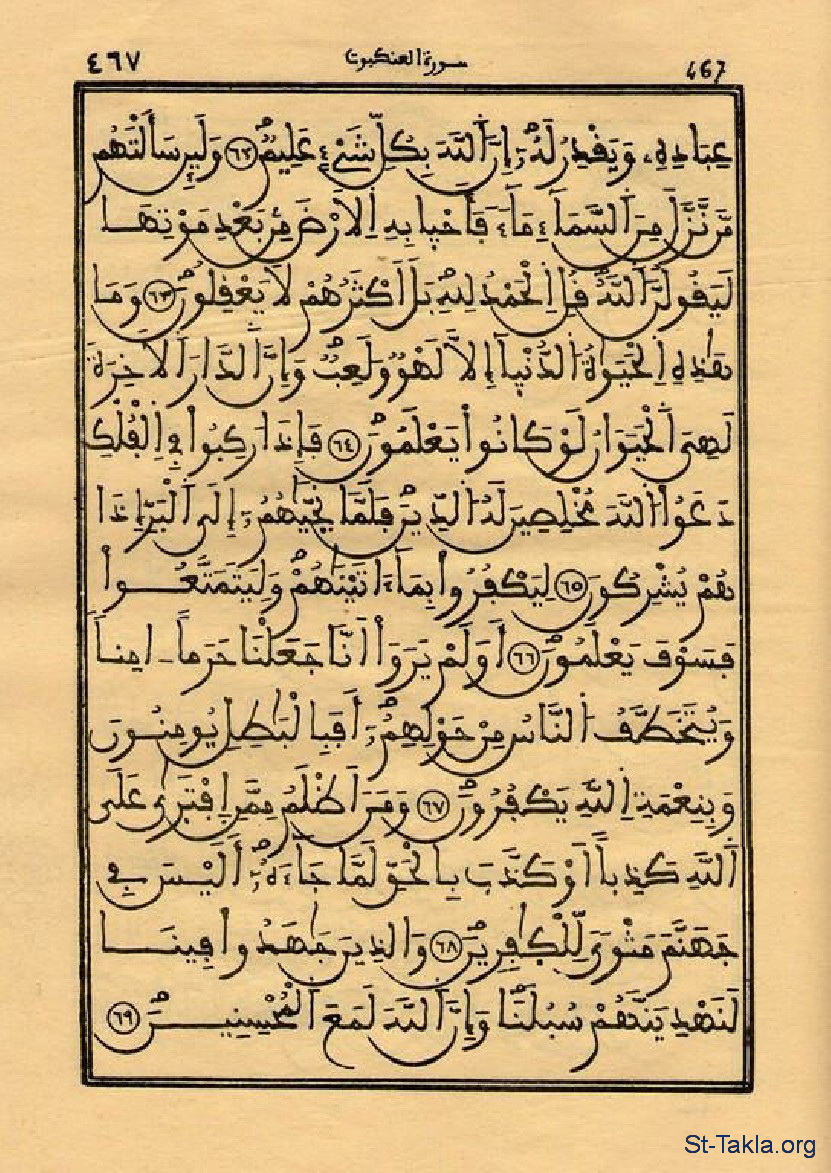 ٤٦٧ سورة العنكبوت 467
عِبَادِهِۦ وَيَقْدِرُ لَهُۥٓ إِنَّ اَ۬للَّهَ بِكُلِّ شَےْءٍ عَلِيمٌ ٦٢ وَلَئِن سَأَلْتَهُم
مَّن نَّزَّلَ مِنَ اَ۬لسَّمَآءِ مَآءً فَأَحْيَا بِهِ اِ۬لَارْضَ مِنۢ بَعْدِ مَوْتِهَا
لَيَقُولُنَّ اَ۬للَّهُ قُلِ اِ۬لْحَمْدُ لِلهِ بَلَ اَكْثَرُهُمْ لَا يَعْقِلُونَ ٦٣ وَمَا
هَٰذِهِ اِ۬لْحَيَوٰةُ اُ۬لدُّنْيَآ إِلَّا لَهْوٌ وَلَعِبٌ وَإِنَّ اَ۬لدَّارَ اَ۬لَاخِرَةَ
لَهِىَ اَ۬لْحَيَوَانُ لَوْ كَانُوا۟ يَعْلَمُونَ ٦٤ فَإِذَا رَكِبُوا۟ فِے اِ۬لْفُلْكِ
دَعَوُا۟ اُ۬للَّهَ مُخْلِصِينَ لَهُ اُ۬لدِّينَ فَلَمَّا نَجَّىٰهُمُۥٓ إِلَى اَ۬لْبَرِّ إِذَا
هُمْ يُشْرِكُونَ ٦٥ لِيَكْفُرُوا۟ بِمَآ ءَاتَيْنَٰهُمْ وَلِيَتَمَتَّعُوا۟
فَسَوْفَ يَعْلَمُونَ ٦٦ أَوَلَمْ يَرَوَا۟ اَنَّا جَعَلْنَا حَرَماً ـ امِناً
وَيُتَخَطَّفُ اُ۬لنَّاسُ مِنْ حَوْلِهِمُۥٓ أَفَبِالْبَٰطِلِ يُومِنُونَ
وَبِنِعْمَةِ اِ۬للَّهِ يَكْفُرُونَ ٦٧ وَمَنَ اَظْلَمُ مِمَّنِ اِ۪فْتَر۪ىٰ عَلَى
اَ۬للَّهِ كَذِباً اَوْ كَذَّبَ بِالْحَقِّ لَمَّا جَآءَهُۥٓ أَلَيْسَ فِے
جَهَنَّمَ مَثْوىً لِّلْكٰ۪فِرِينَ ٦٨ وَالذِينَ جَٰهَدُوا۟ فِينَا
لَنَهْدِيَنَّهُمْ سُبُلَنَا وَإِنَّ اَ۬للَّهَ لَمَعَ اَ۬لْمُحْسِنِينَ ٦٩
St-Takla.org